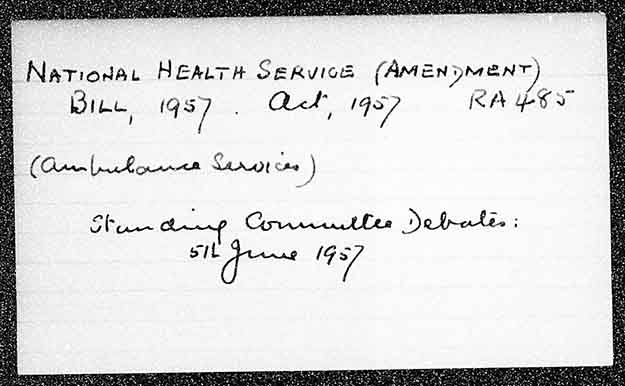 NATIONAL HEALTH SERVICE (AMENDMENT)
BILL, 1957. Act, 1957 RA485
(Ambulance Services)
Standing Committee Debates:
5th June 1957